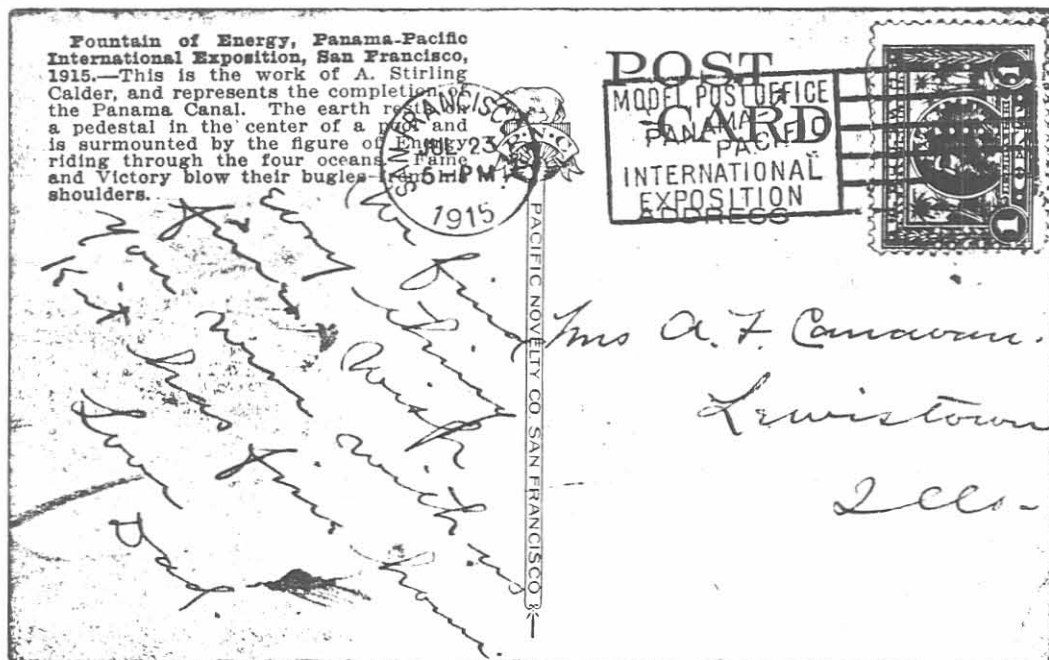 Fountain of Energy, Panama-Pacific
International Exposition, San Francisco,
1915.—This is the work of A. Stirling
Calder, and represents the completion of
the Panama Canal. The earth rests on
a pedestal in the center of a pool and
is surmounted by the figure of Energy
riding through the four oceans. Fame
and Victory blow their bugles from his
shoulders.
SAN FRANCISCO, CAL.
JUL 23
5-PM
1915
POST CARD
ADDRESS
MODEL POST OFFICE
PANAMA
PACIFIC
INTERNATIONAL
EXPOSITION
1 1
PACIFIC NOVELTY CO. SAN FRANCISCO
find
every thing
fine Wish
you were with us
Kit has fine home.
Love
Dad
Mrs A. F. Canavan.
Lewistown
Ills-